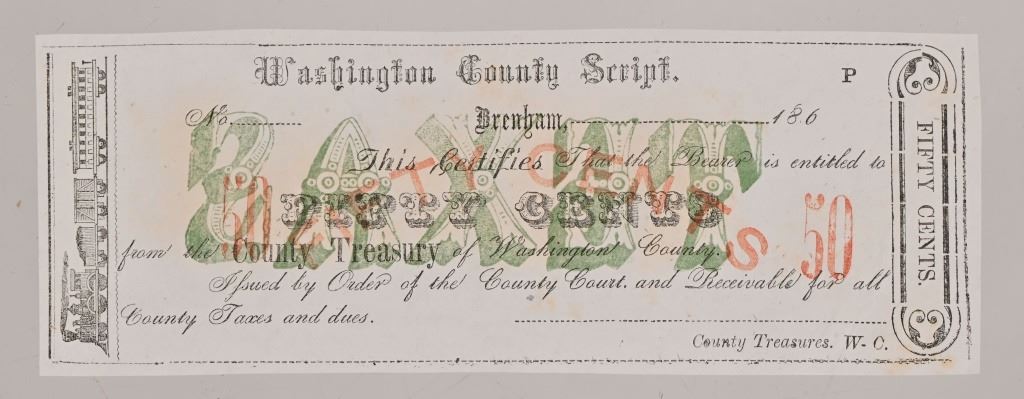 Washington County Script.
P
No
Brenham, 186
This Certifies That the Bearer is entitled to
50 FIFTY CENTS 50
FIFTY CENTS
from the County Treasury of Washington County.
Issued by Order of the County Court. and Receivable for all
County Taxes and dues.
County Treasures. W-C.
FIFTY CENTS.